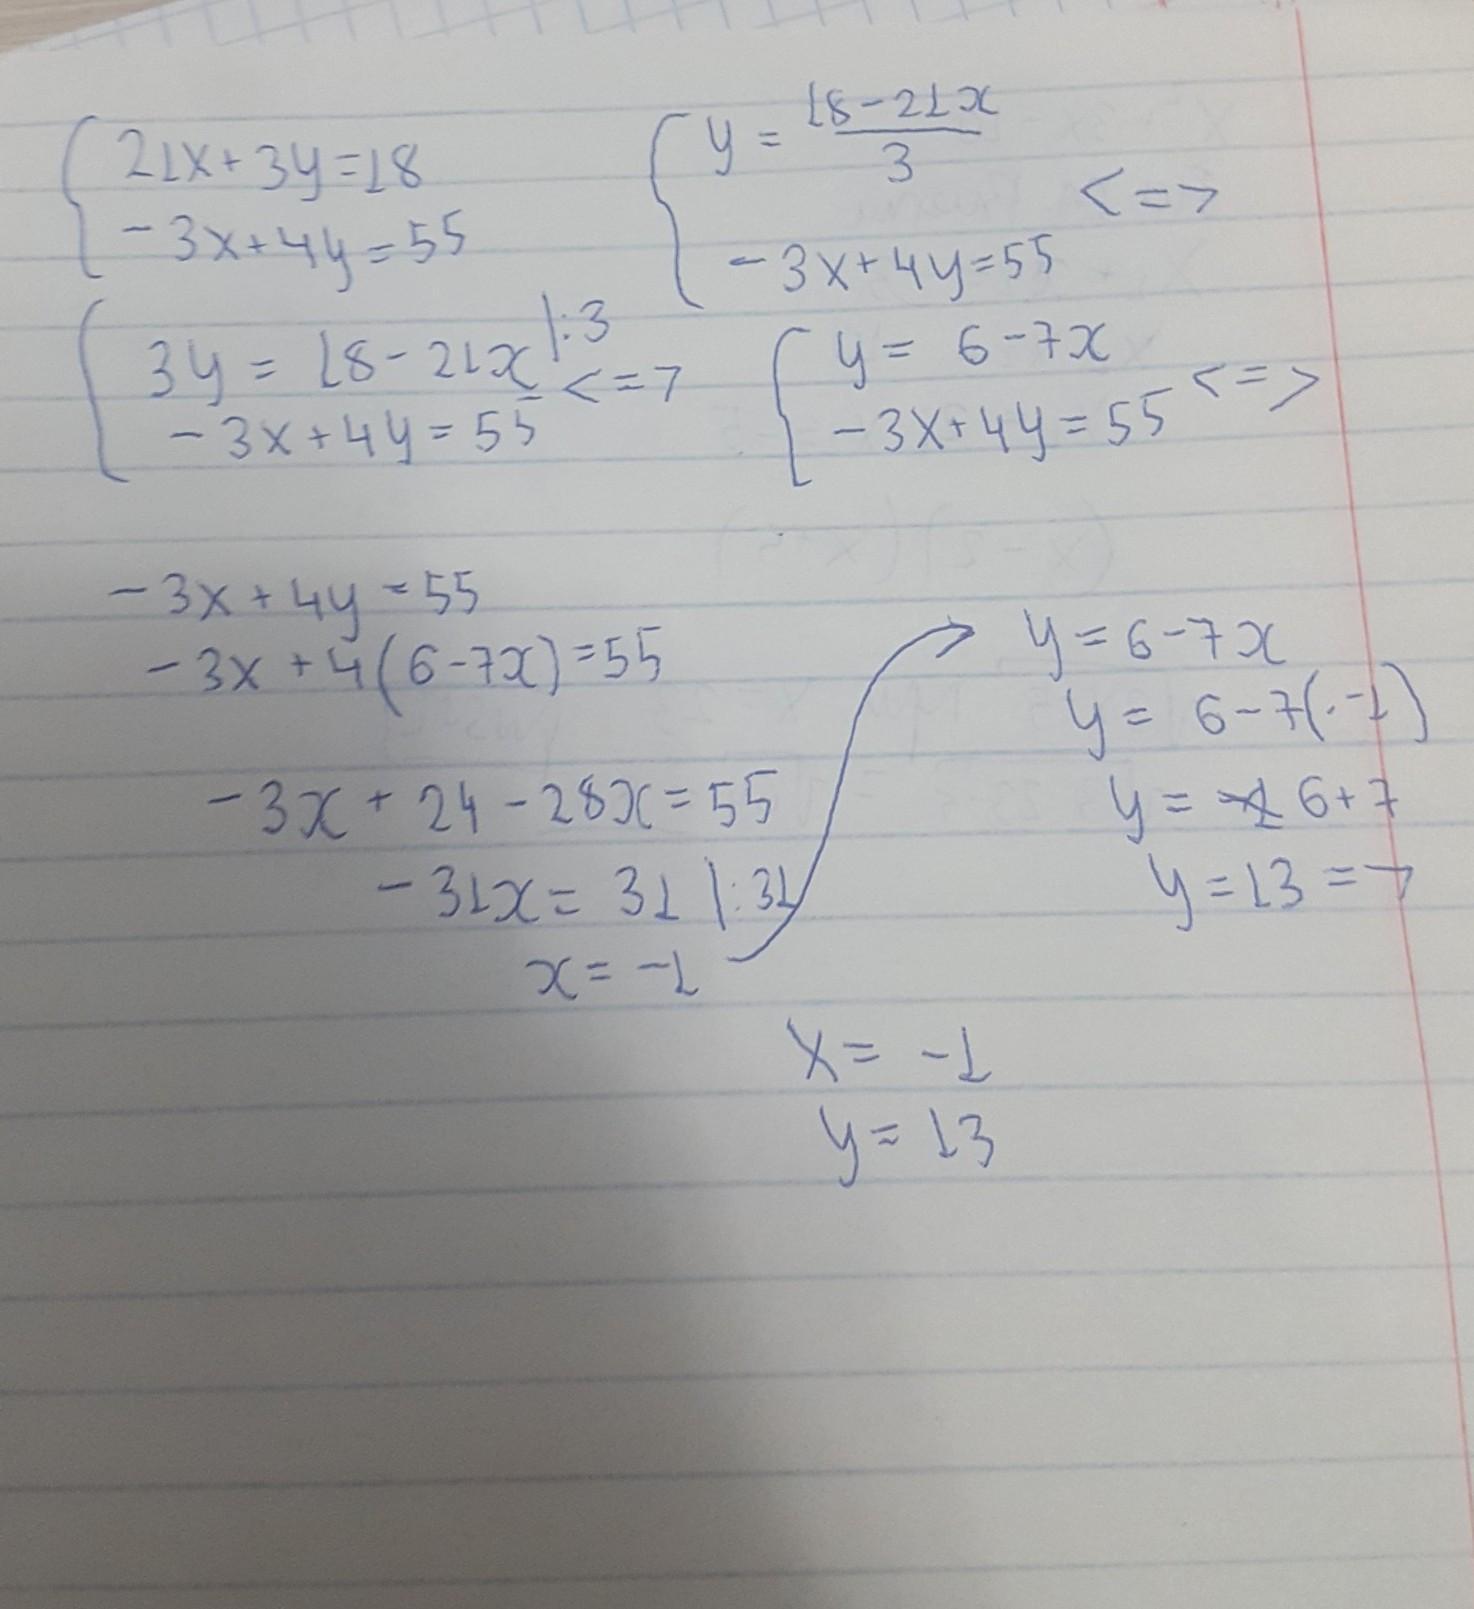 21x+3y=18
-3x+4y=55
3y = 18-21x |:3 <=>
-3x+4y=55
y = 18-21x
3
<=>
-3x+4y=55
y = 6-7x
-3x+4y=55 <=>
-3x+4y=55
-3x+4(6-7x)=55
-3x+24-28x=55
-31x=31 |:31
x=-1
y=6-7x
y=6-7(·-1)
y= 6+7
y=13 =>
x=-1
y=13